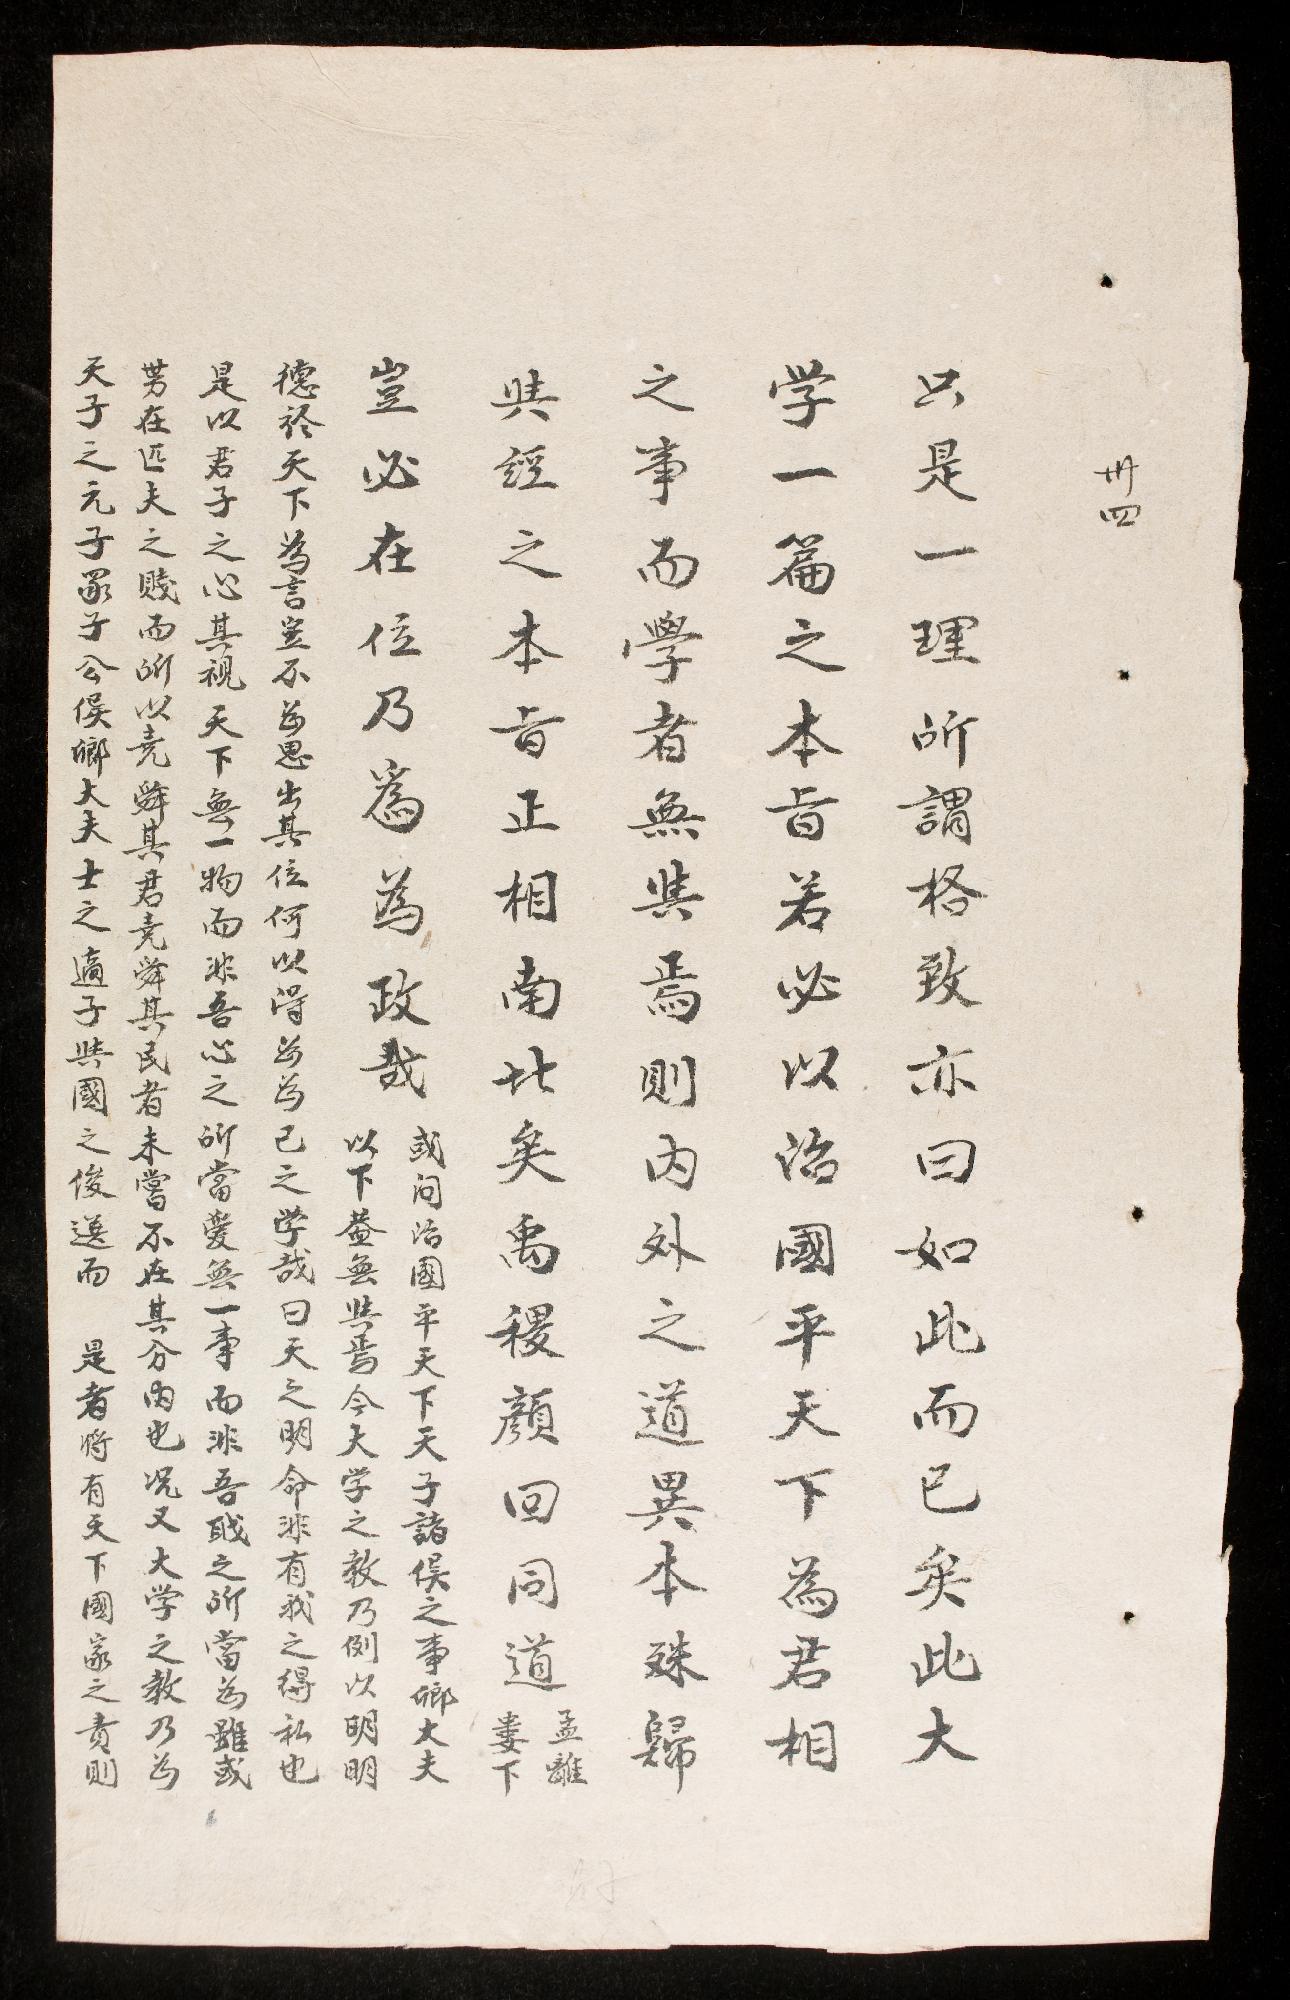 卅四
只是一理所謂格致亦曰如此而已矣此大
学一篇之本旨若必以治國平天下為君相
之事而學者無與焉則內外之道異本殊歸
與經之本旨正相南北矣禹稷顏回同道
孟離
婁下
豈必在位乃為為政哉
或问治國平天下天子諸侯之事卿大夫
以下蓋無與焉今大学之教乃例以明明
德於天下為言豈不为思出其位何以得为為己之学哉曰天之明命非有我之得私也
是以君子之心其視天下無一物而非吾心之所當愛無一事而非吾职之所當为雖或
势在匹夫之賤而所以尭舜其君尭舜其民者未嘗不在其分内也况又大学之教乃为
天子之元子冢子公侯卿大夫士之適子與國之俊選而 是者将有天下國家之責則